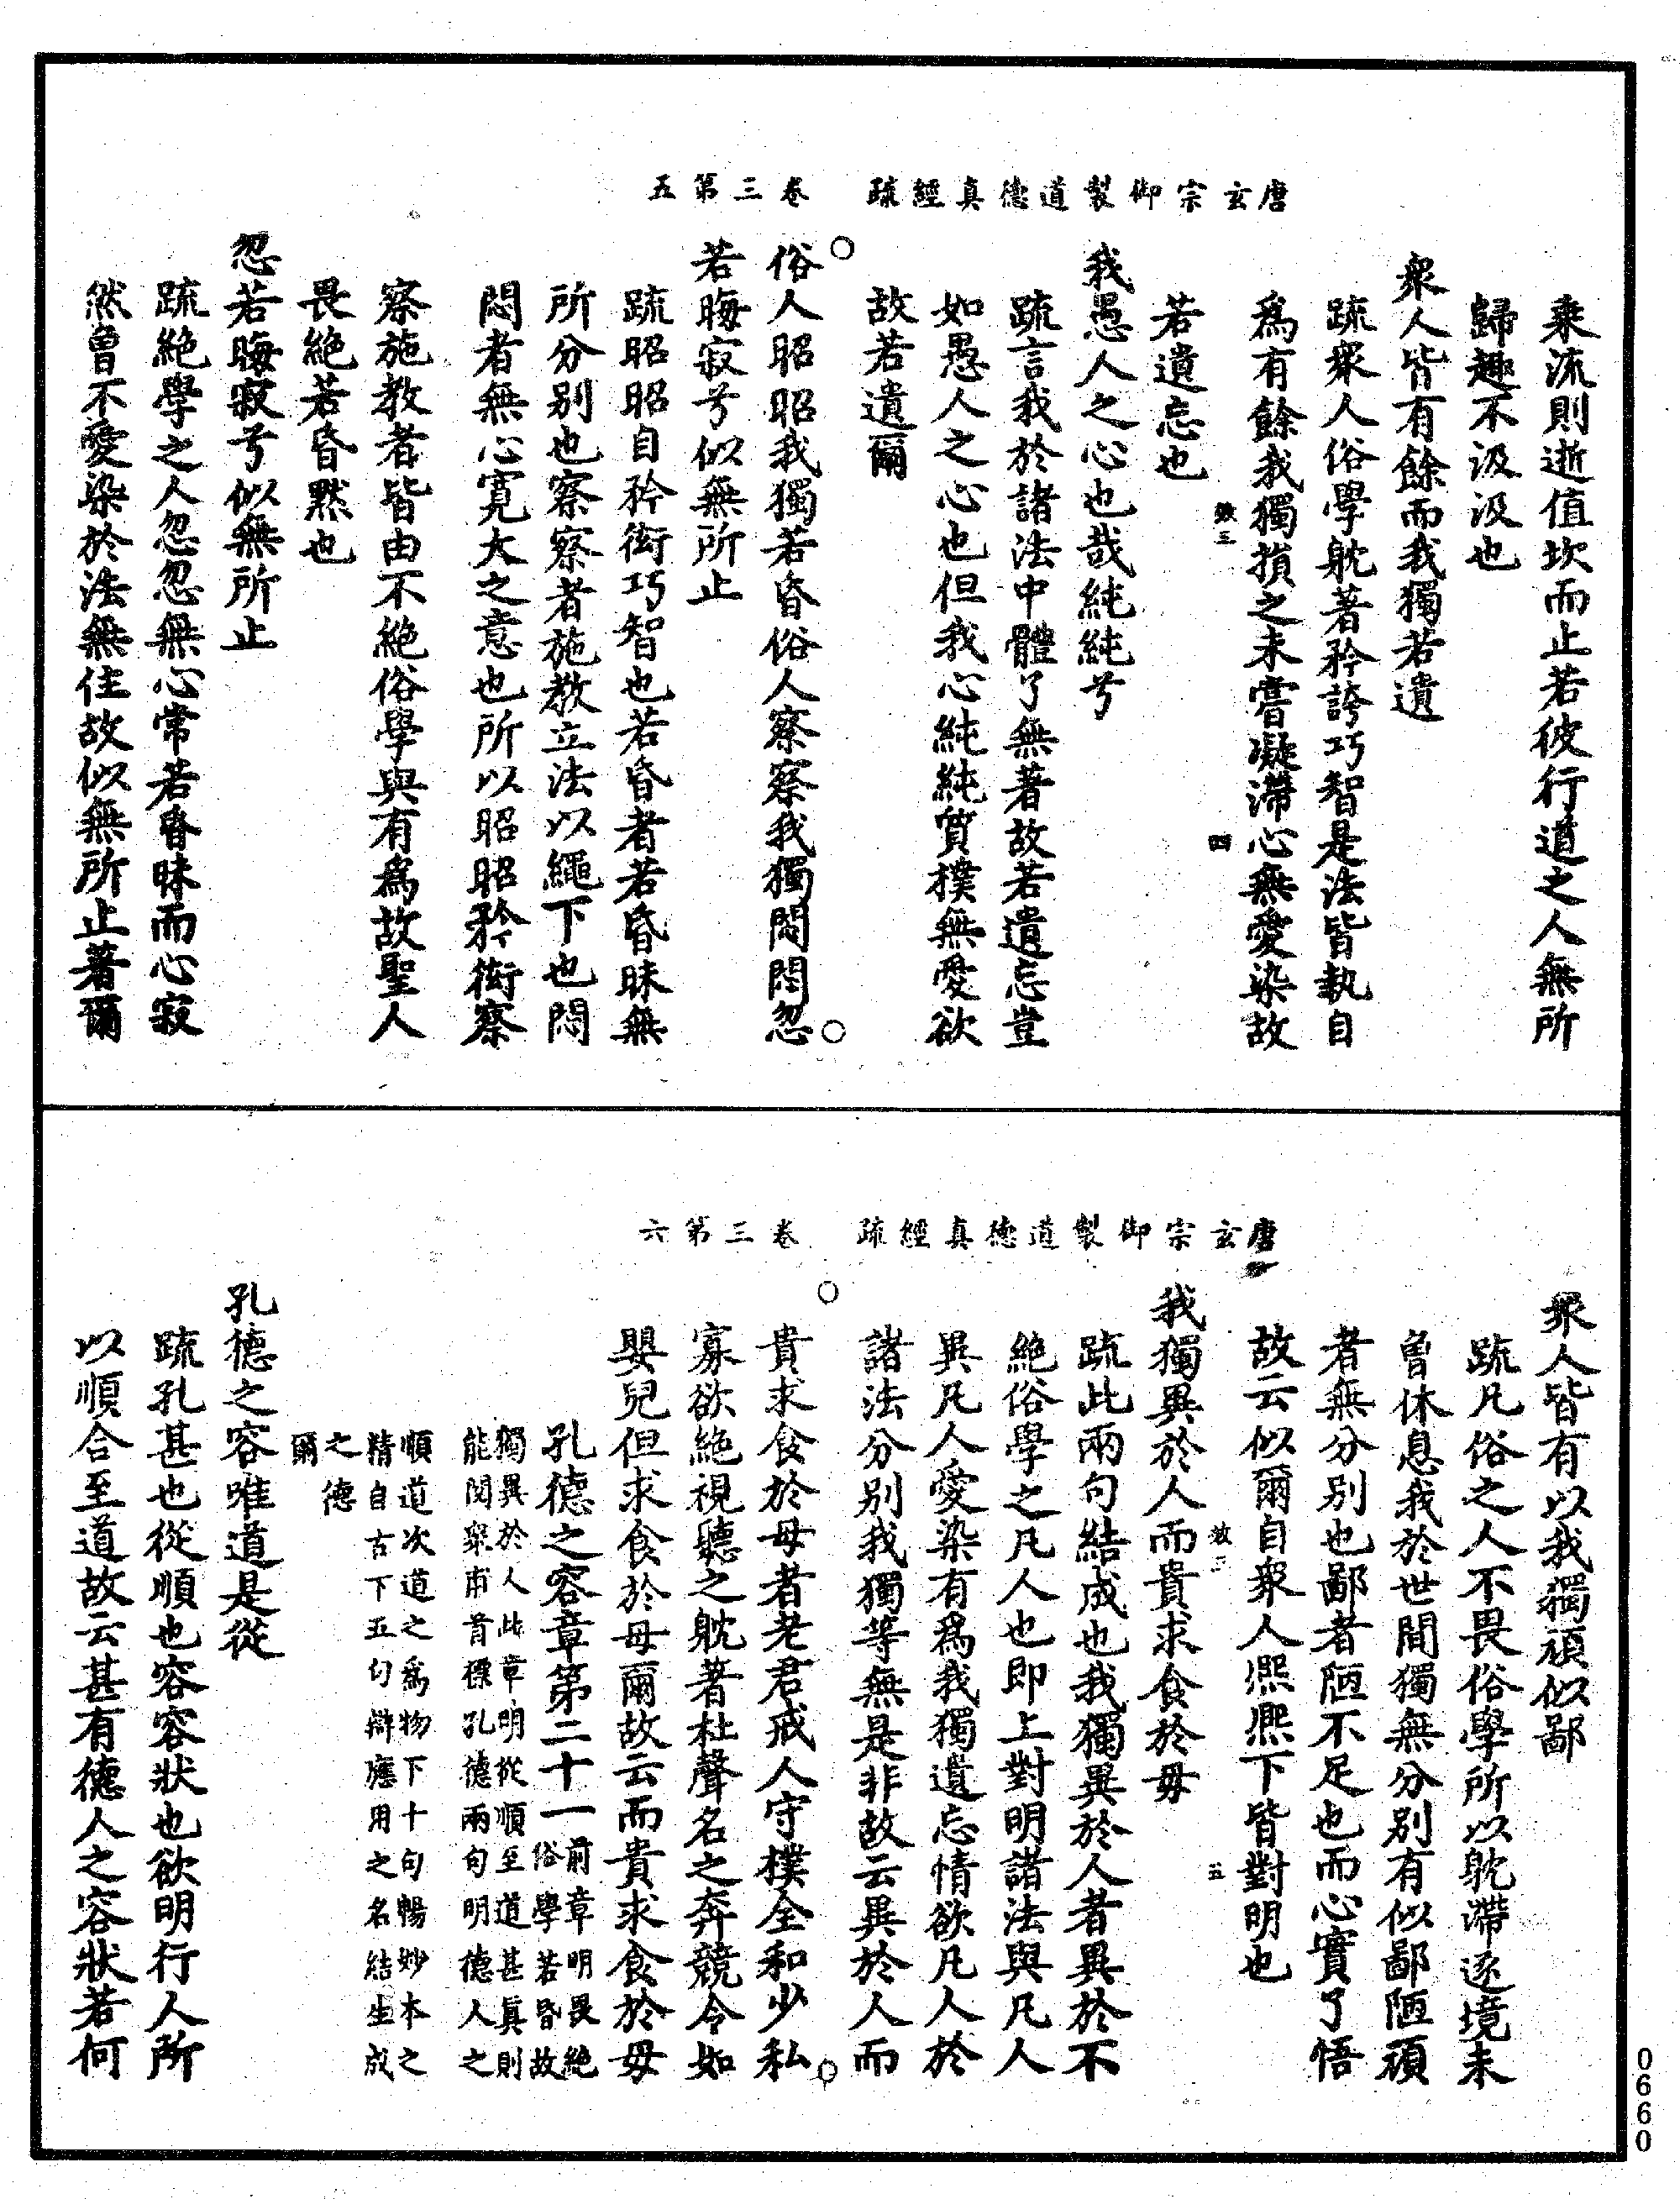 唐玄宗御製道德真經疏　卷三第五
乘流則逝值坎而止若彼行道之人無所
歸趣不汲汲也
衆人皆有餘而我獨若遺
疏衆人俗學躭著矜誇巧智是法皆執自
爲有餘我獨損之未嘗凝滯心無愛染故
若遺忘也
我愚人之心也哉純純兮
疏言我於諸法中體了無著故若遺忘豈
如愚人之心也但我心純純質樸無愛欲
故若遺爾
俗人昭昭我獨若昏俗人察察我獨悶悶忽
若晦寂兮似無所止
疏昭昭自矜衒巧智也若昏者若昏昧無
所分別也察察者施教立法以繩下也悶
悶者無心寬大之意也所以昭昭矜衒察
察施教者皆由不絕俗學與有爲故聖人
畏絕若昏黙也
忽若晦寂兮似無所止
疏絕學之人忽忽無心常若昏昧而心寂
然曾不愛染於法無住故似無所止著爾
唐玄宗御製道德真經疏　卷三第六
衆人皆有以我獨頑似鄙
疏凡俗之人不畏俗學所以躭滯逐境未
曾休息我於世間獨無分別有似鄙陋頑
者無分別也鄙者陋不足也而心實了悟
故云似爾自衆人熈熈下皆對明也
我獨異於人而貴求食於母
疏此兩句結成也我獨異於人者異於不
絕俗學之凡人也即上對明諸法與凡人
異凡人愛染有爲我獨遺忘情欲凡人於
諸法分別我獨等無是非故云異於人而
貴求食於母者老君戒人守樸全和少私
寡欲絕視聽之躭著杜聲名之奔競令如
嬰兒但求食於母爾故云而貴求食於母
孔德之容章第二十一
前章明畏絕
俗學若昏故
獨異於人此章明從順至道甚眞則
能閱衆甫首標孔德兩句明德人之
順道次道之爲物下十句暢妙本之
精自古下五句辯應用之名結生成
之德
爾
孔德之容唯道是從
疏孔甚也從順也容容狀也欲明行人所
以順合至道故云甚有德人之容狀若何
0660